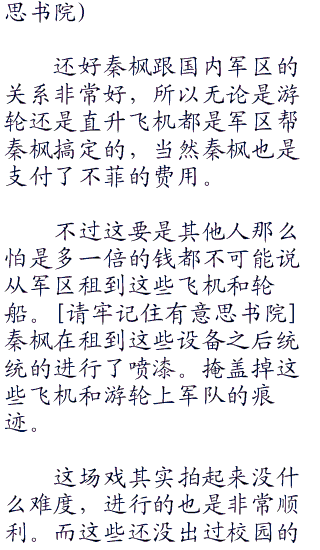 思书院)
还好秦枫跟国内军区的
关系非常好，所以无论是游
轮还是直升飞机都是军区帮
秦枫搞定的，当然秦枫也是
支付了不菲的费用。
不过这要是其他人那么
怕是多一倍的钱都不可能说
从军区租到这些飞机和轮
船。[请牢记住有意思书院]
秦枫在租到这些设备之后统
统的进行了喷漆。掩盖掉这
些飞机和游轮上军队的痕
迹。
这场戏其实拍起来没什
么难度，进行的也是非常顺
利。而这些还没出过校园的